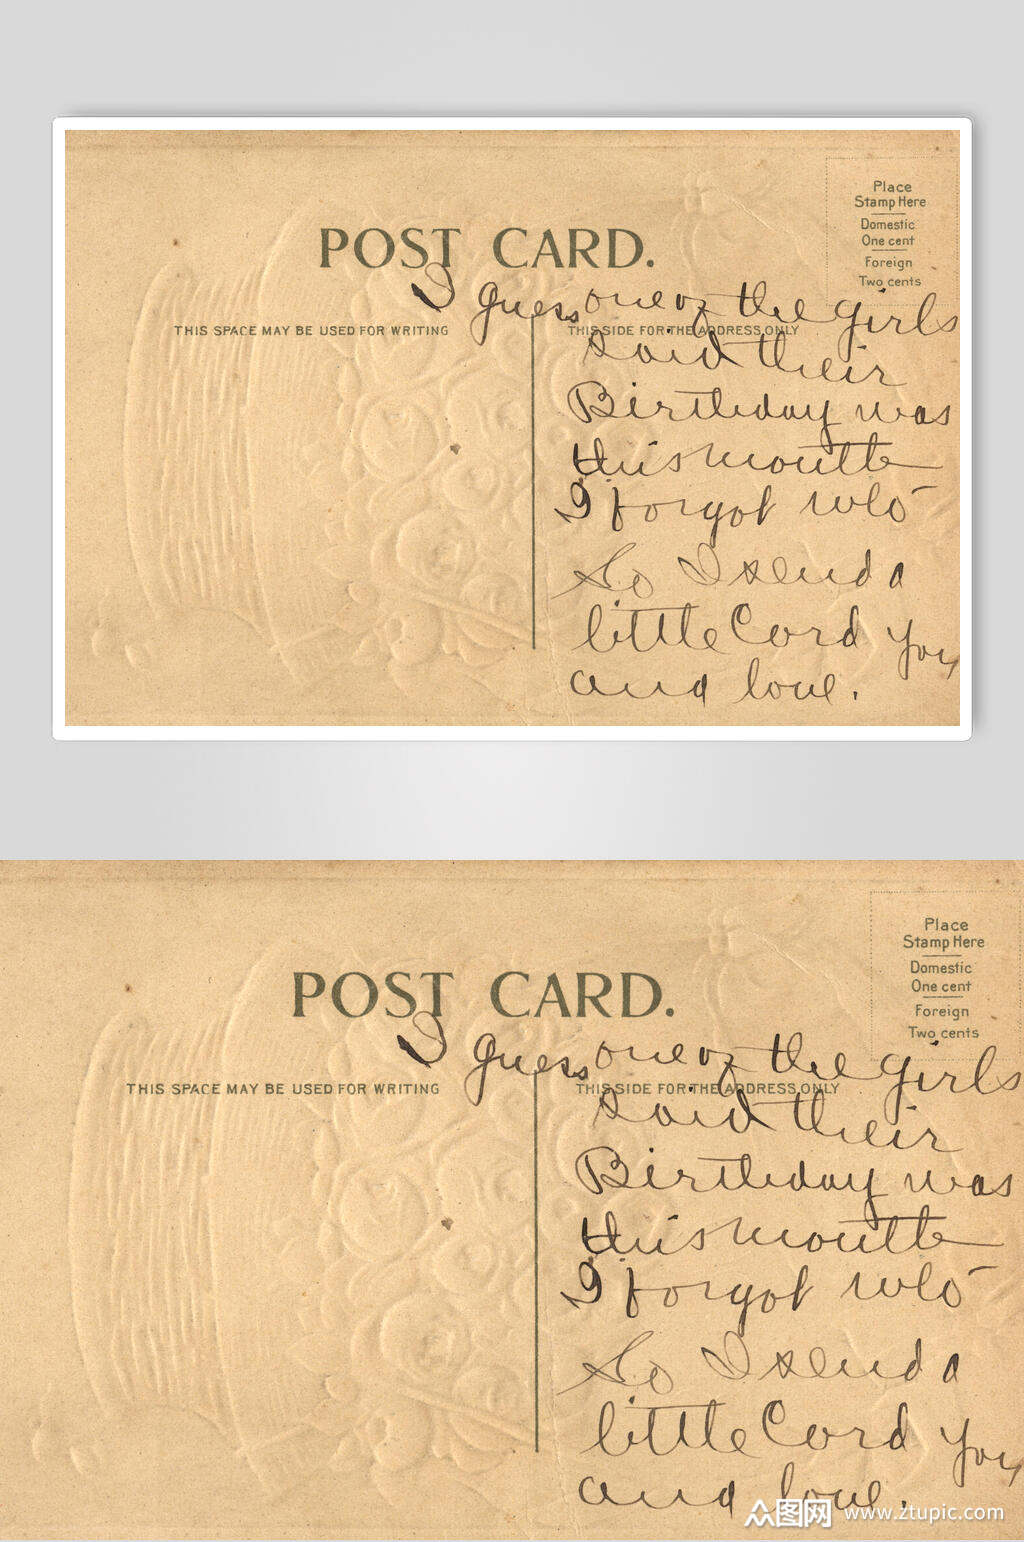 Place
Stamp Here
Domestic
One cent
Foreign
Two cents
POST CARD.
THIS SPACE MAY BE USED FOR WRITING
THIS SIDE FOR THE ADDRESS ONLY
I guess one of the girls
said their
Birthday was
this month
I forgot who
So I send a
little Card you
and love.
Place
Stamp Here
Domestic
One cent
Foreign
Two cents
POST CARD.
THIS SPACE MAY BE USED FOR WRITING
THIS SIDE FOR THE ADDRESS ONLY
I guess one of the girls
said their
Birthday was
this month
I forgot who
So I send a
little Card you
and love.
众图网 www.ztupic.com